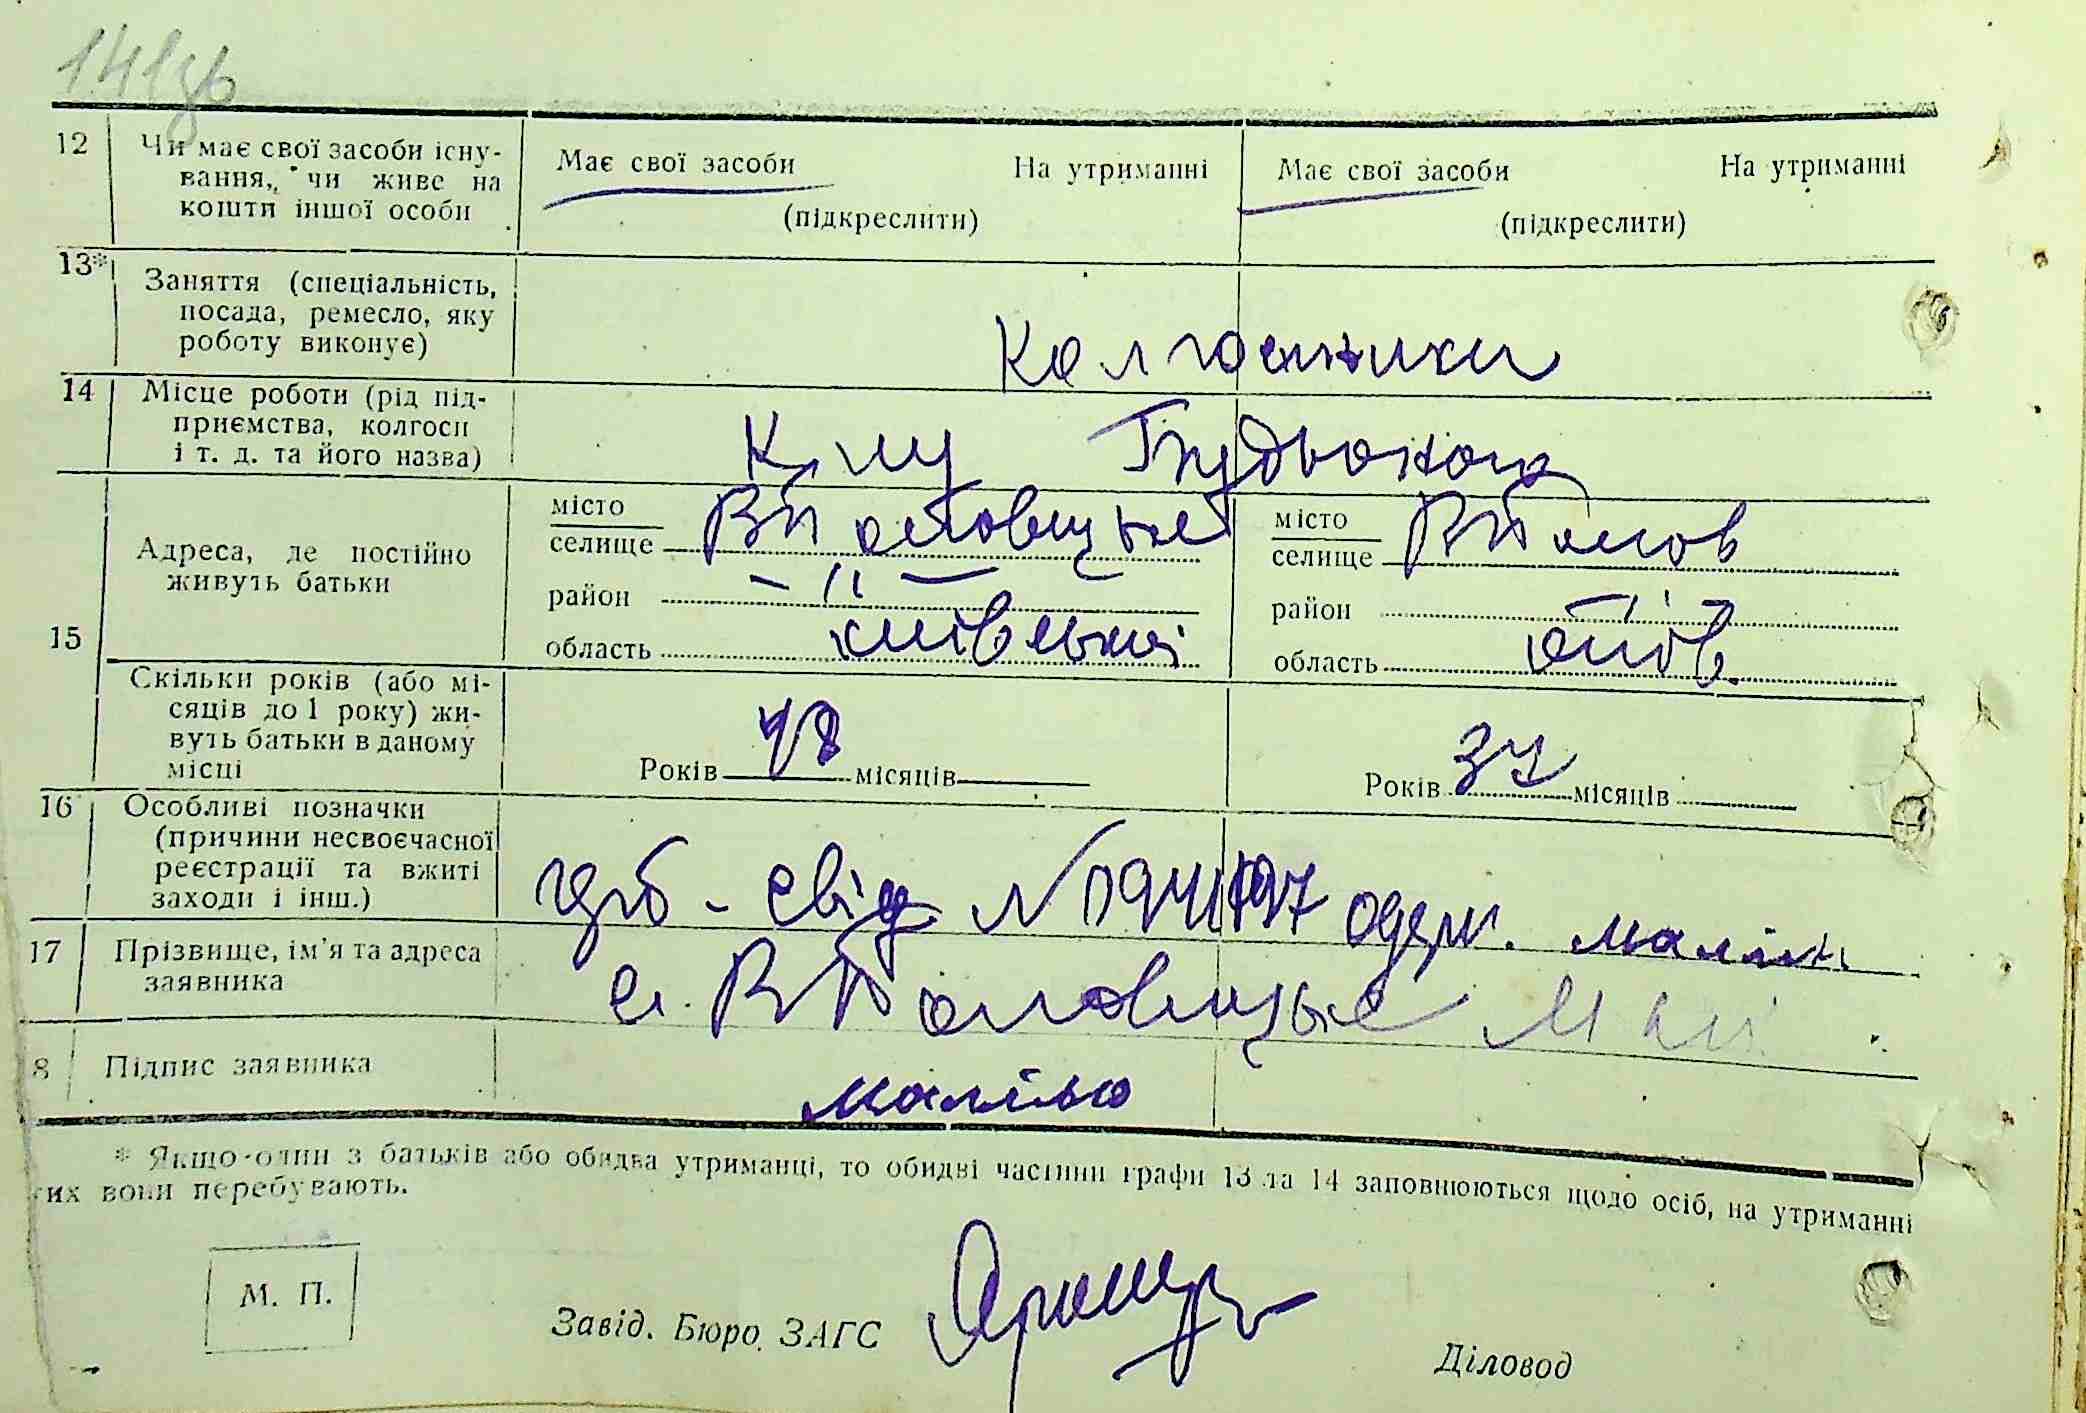 141зв
12 Чи має свої засоби існу-
вання, чи живе на
кошти іншої особи
Має свої засоби На утриманні
(підкреслити)
Має свої засоби На утриманні
(підкреслити)
13* Заняття (спеціальність,
посада, ремесло, яку
роботу виконує)
Колгоспники
14 Місце роботи (рід під-
приємства, колгосп
і т. д. та його назва)
К-пу Будьоного
15 Адреса, де постійно
живуть батьки
місто
селище
район
область Київської
місто
селище
район
область
Скільки років (або мі-
сяців до 1 року) жи-
вуть батьки в даному
місці
Років 48 місяців
Років 37 місяців
16 Особливі позначки
(причини несвоєчасної
реєстрації та вжиті
заходи і інш.)
свід N одерж.
17 Прізвище, ім'я та адреса
заявника
с.
8 Підпис заявника
* Якщо один з батьків або обидва утриманці, то обидві частини графи 13 та 14 заповнюються щодо осіб, на утриманні
их вони перебувають.
М. П.
Завід. Бюро ЗАГС
Діловод